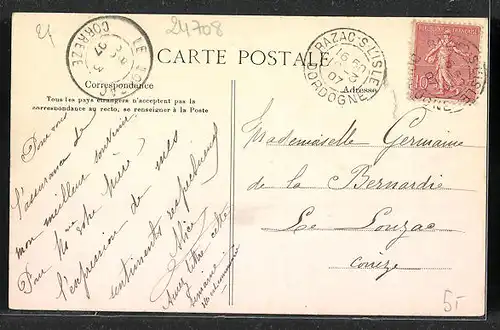 24708
CARTE POSTALE
LE
CORREZE
3
07
RAZAC-S-L'ISLE
DORDOGNE
07
10
Correspondance
Adresse
Tous les pays étrangers n'acceptent pas la
correspondance au recto, se renseigner à la Poste
Pour vous
l'assurance de
mon meilleur souvenir.
Pour votre mère,
l'expression de mes
sentiments respectueux
Alice
Mademoiselle Germaine
de la Bernardie
Le Louzac
Corrèze
5-